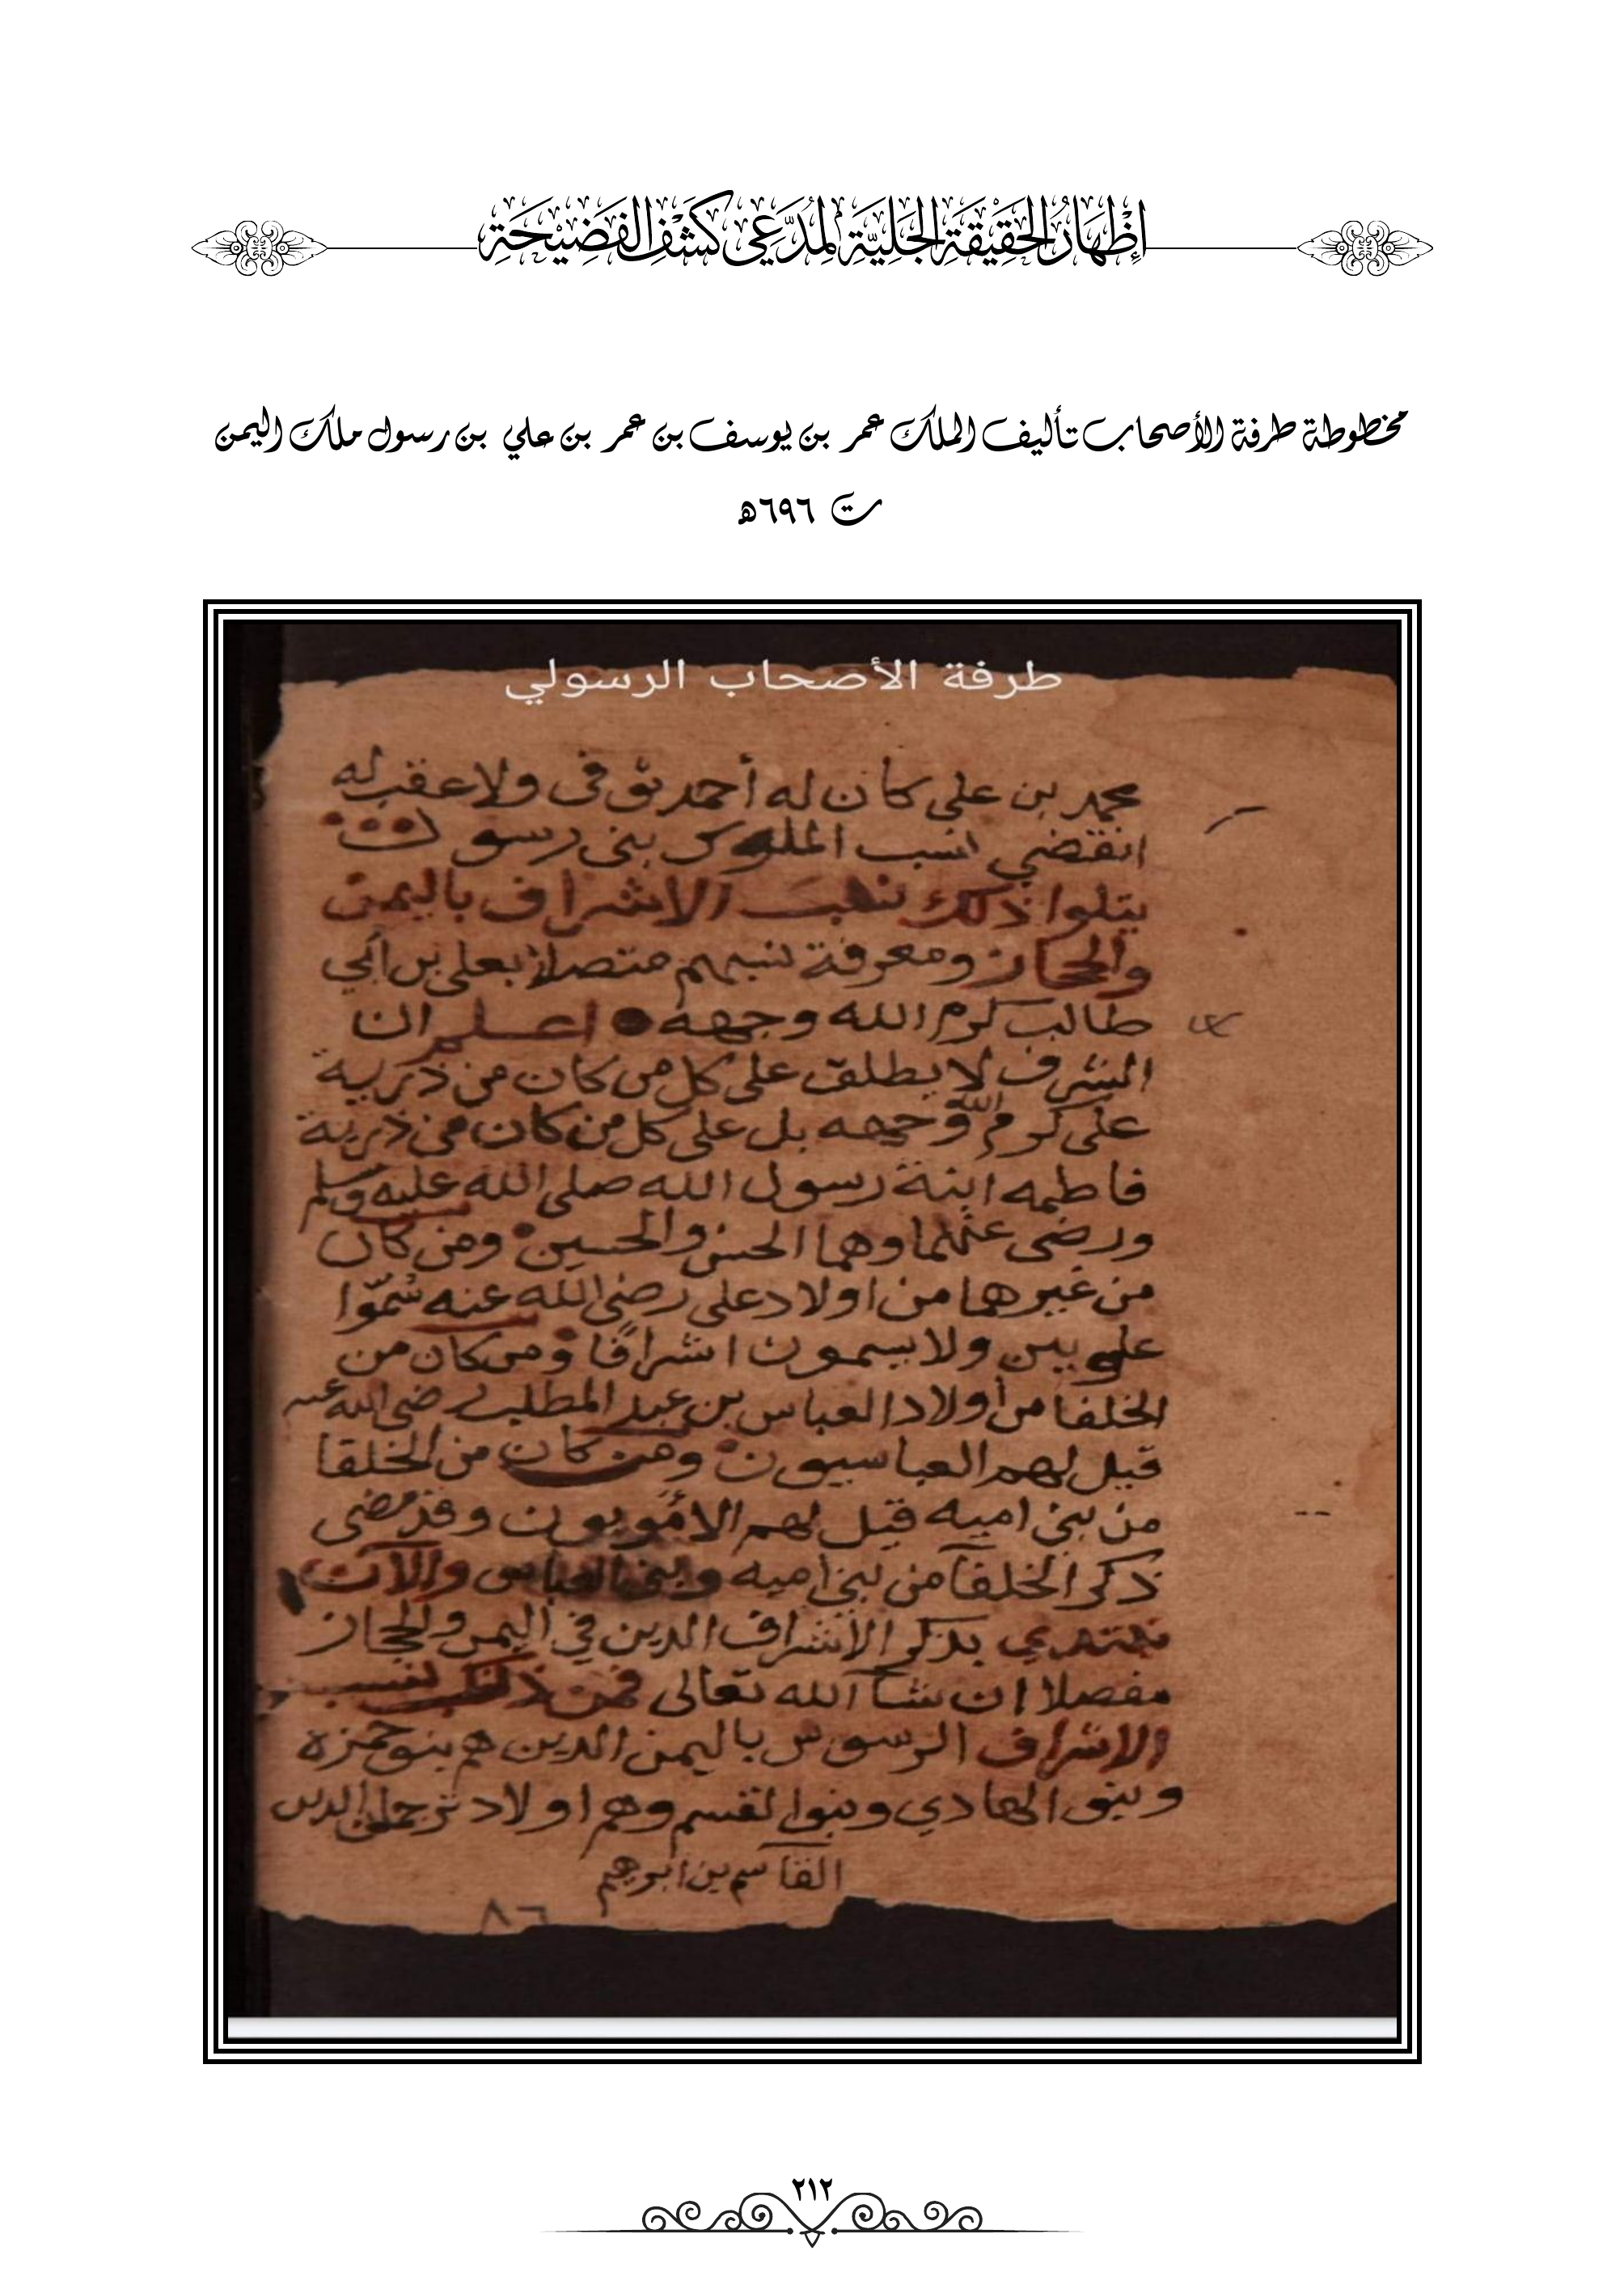 إِظْهَارُ الحَقِيْقَةِ الجَلِيَّةِ لِمُدَّعِي كَشْفِ الفَضِيْحَةِ
مخطوطة طرفة الأصحاب تأليف الملك عمر بن يوسف بن عمر بن علي بن رسول ملك اليمن
ت ٦٩٦هـ
طرفة الأصحاب الرسولي
محمد بن علي كان له أحمد توفى ولا عقب له
انقضي نسب الملوك بنى رسول
يتلوا ذلك نسب الاشراف باليمن
والحجاز ومعرفة نسبهم متصلا بعلي بن أبي
طالب كرم الله وجهه اعلم ان
الشرف لا يطلق على كل من كان من ذرية
على كرم الله وجهه بل على كل من كان من ذرية
فاطمه ابنة رسول الله صلى الله عليه وسلم
ورضى عنهما وهما الحسن والحسين ومن كان
من غيرهما من اولاد على رضى الله عنه سُمّوا
علويين ولا يسمون اشرافًا ومن كان من
الخلفا من أولاد العباس بن عبد المطلب رضى الله عنه
قيل لهم العباسيون ومن كان من الخلفا
من بنى اميه قيل لهم الأمويون وقد مضى
ذكر الخلفآ من بنى اميه وبنى العباس والآن
نبتدي بذكر الأشراف الذين في اليمن والحجاز
مفصلا ان شآ الله تعالى فمن ذلك نسب
الاشراف الرسوس باليمن الذين هم بنو حمزه
وبنو الهادي وبنوا لقسم وهم اولاد ترجمان الدين
القاسم بن ابرهيم
٨٦
٢١٢